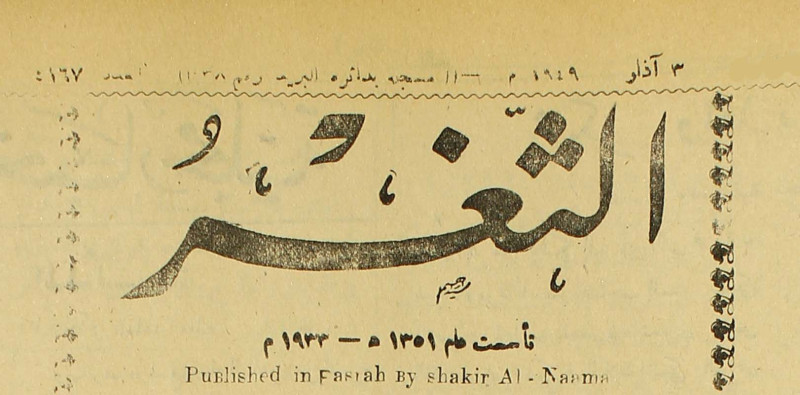 ٣ آذار ١٩٤٩ م —(( مسجله بدائره البريد رقم ١٠٣٨ )) العدد ٤١٦٧
الثغر
تأسست عام ١٣٥١ ه — ١٩٣٣ م
Published in Fasrah By shakir Al - Naama